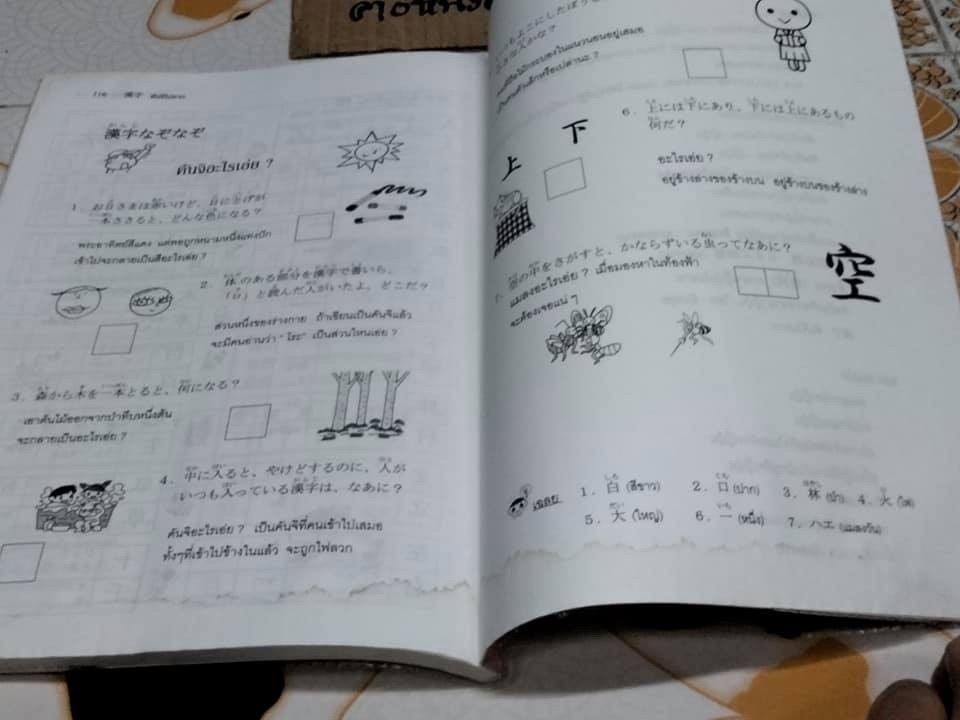 116 漢字
漢字なぞなぞ
คันจิอะไรเอ่ย ?
1. お日さまは赤いけど、日にとげが
一本ささると、どんな色になる？
พระอาทิตย์สีแดง แต่พอถูกหนามหนึ่งแทงปัก
เข้าไปจะกลายเป็นสีอะไรเอ่ย ?
2. 体のある部分を漢字で書いたら、
「ロ」と読んだ人がいたよ。どこだ？
ส่วนหนึ่งของร่างกาย ถ้าเขียนเป็นคันจิแล้ว
จะมีคนอ่านว่า "โระ" เป็นส่วนไหนเอ่ย ?
3. 森から木を一本とると、何になる？
เอาต้นไม้ออกจากป่าทึบหนึ่งต้น
จะกลายเป็นอะไรเอ่ย ?
4. 中に入ると、やけどするのに、人が
いつも入っている漢字は、なあに？
คันจิอะไรเอ่ย ? เป็นคันจิที่คนเข้าไปเสมอ
ทั้งๆที่เข้าไปข้างในแล้ว จะถูกไฟลวก
上 下
6. 上には下にあり、下には上にあるもの
何だ？
อะไรเอ่ย ?
อยู่ข้างล่างของข้างบน อยู่ข้างบนของข้างล่าง
7. 空の中をさがすと、かならずいる虫ってなあに？
แมลงอะไรเอ่ย ? เมื่อมองหาในท้องฟ้า
จะต้องเจอแน่ ๆ
空
เฉลย 1. 白 (สีขาว) 2. 口 (ปาก) 3. 林 (ป่า) 4. 火 (ไฟ)
5. 大 (ใหญ่) 6. 一 (หนึ่ง) 7. ハエ (แมลงวัน)